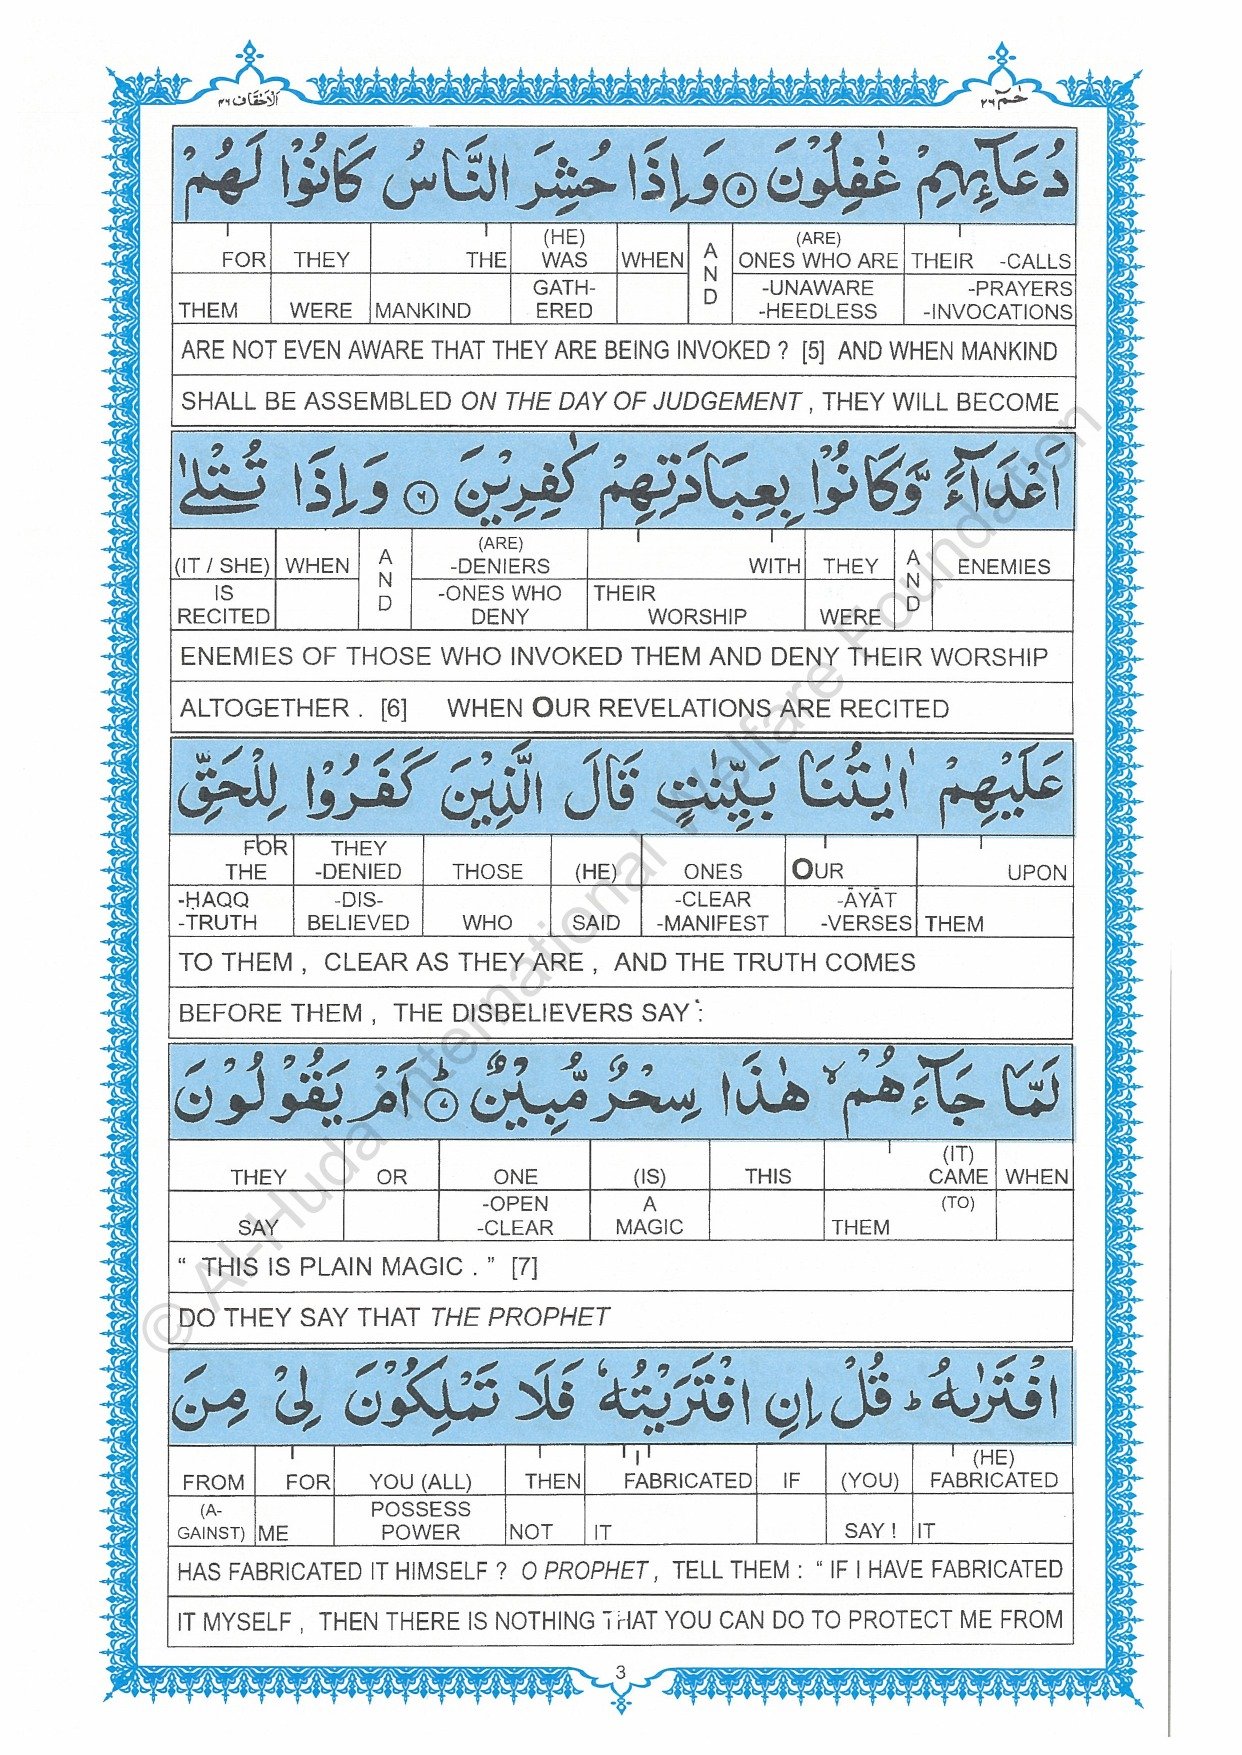 الاحقاف ٤٦
حٰمٓ ٢٦
دُعَآئِهِمْ غٰفِلُوْنَ ۝٥ وَاِذَا حُشِرَ النَّاسُ كَانُوْا لَهُمْ
FOR THEY THE (HE) WAS WHEN AND (ARE) ONES WHO ARE THEIR -CALLS
THEM WERE MANKIND GATH-ERED -UNAWARE -HEEDLESS -PRAYERS -INVOCATIONS
ARE NOT EVEN AWARE THAT THEY ARE BEING INVOKED ? [5] AND WHEN MANKIND
SHALL BE ASSEMBLED ON THE DAY OF JUDGEMENT , THEY WILL BECOME
اَعْدَآءً وَّكَانُوْا بِعِبَادَتِهِمْ كٰفِرِيْنَ ۝٦ وَاِذَا تُتْلٰى
(IT / SHE) WHEN AND (ARE) -DENIERS WITH THEY AND ENEMIES
IS RECITED -ONES WHO DENY THEIR WORSHIP WERE
ENEMIES OF THOSE WHO INVOKED THEM AND DENY THEIR WORSHIP
ALTOGETHER . [6] WHEN OUR REVELATIONS ARE RECITED
عَلَيْهِمْ اٰيٰتُنَا بَيِّنٰتٍ قَالَ الَّذِيْنَ كَفَرُوْا لِلْحَقِّ
FOR THE THEY -DENIED THOSE (HE) ONES OUR UPON
-ḤAQQ -TRUTH -DIS-BELIEVED WHO SAID -CLEAR -MANIFEST -ĀYĀT -VERSES THEM
TO THEM , CLEAR AS THEY ARE , AND THE TRUTH COMES
BEFORE THEM , THE DISBELIEVERS SAY :
لَمَّا جَآءَهُمْ ۙ هٰذَا سِحْرٌ مُّبِيْنٌ ۝٧ؕ اَمْ يَقُوْلُوْنَ
THEY OR ONE (IS) THIS (IT) CAME WHEN
SAY -OPEN -CLEAR A MAGIC (TO) THEM
“ THIS IS PLAIN MAGIC . ” [7]
DO THEY SAY THAT THE PROPHET
افْتَرٰىهُ ؕ قُلْ اِنِ افْتَرَيْتُهٗ فَلَا تَمْلِكُوْنَ لِيْ مِنَ
FROM FOR YOU (ALL) THEN FABRICATED IF (YOU) (HE) FABRICATED
(A-GAINST) ME POSSESS POWER NOT IT SAY ! IT
HAS FABRICATED IT HIMSELF ? O PROPHET , TELL THEM : “ IF I HAVE FABRICATED
IT MYSELF , THEN THERE IS NOTHING THAT YOU CAN DO TO PROTECT ME FROM
3
© Al-Huda International Welfare Foundation